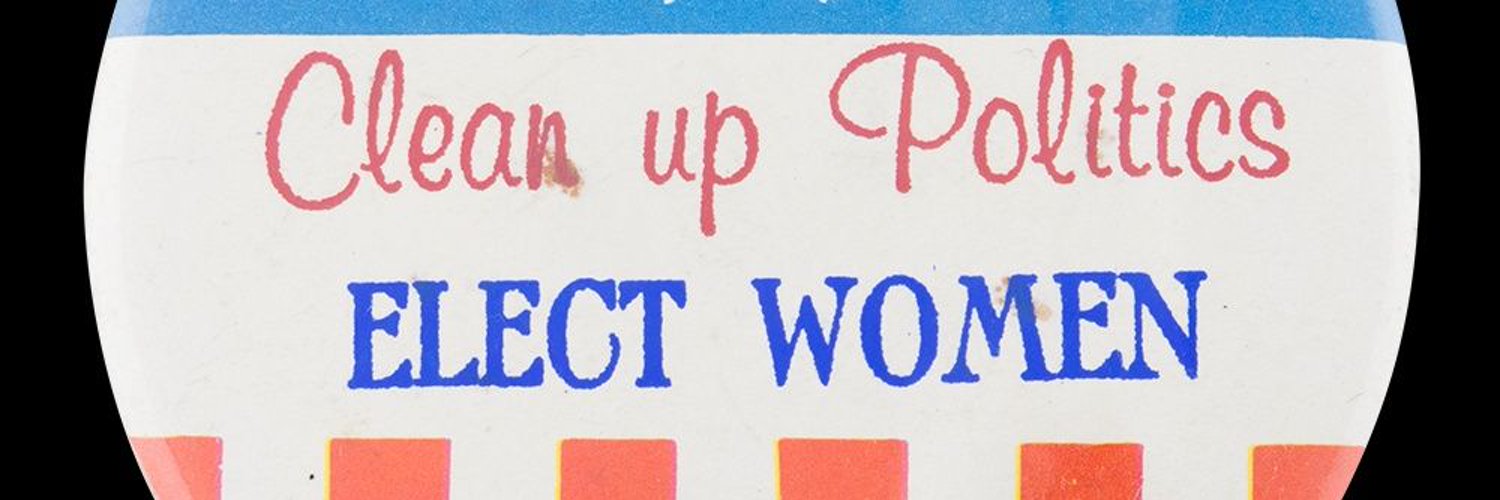 Clean up Politics
ELECT WOMEN